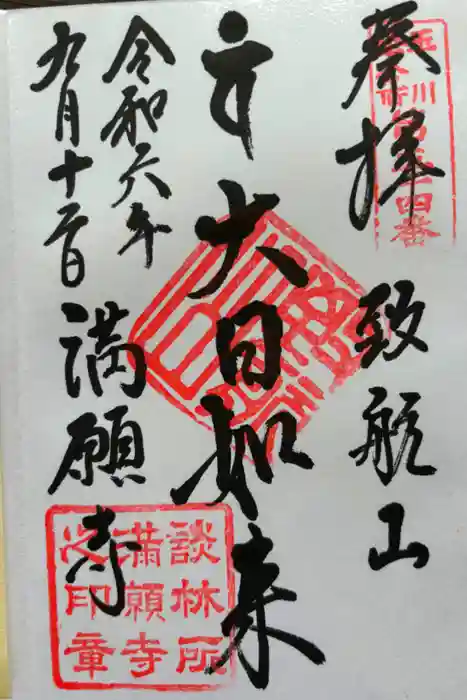 奉拝
玉川
四番
致航山
大日如来
令和六年
九月十二日
満願寺
談林所
満願寺
之印章